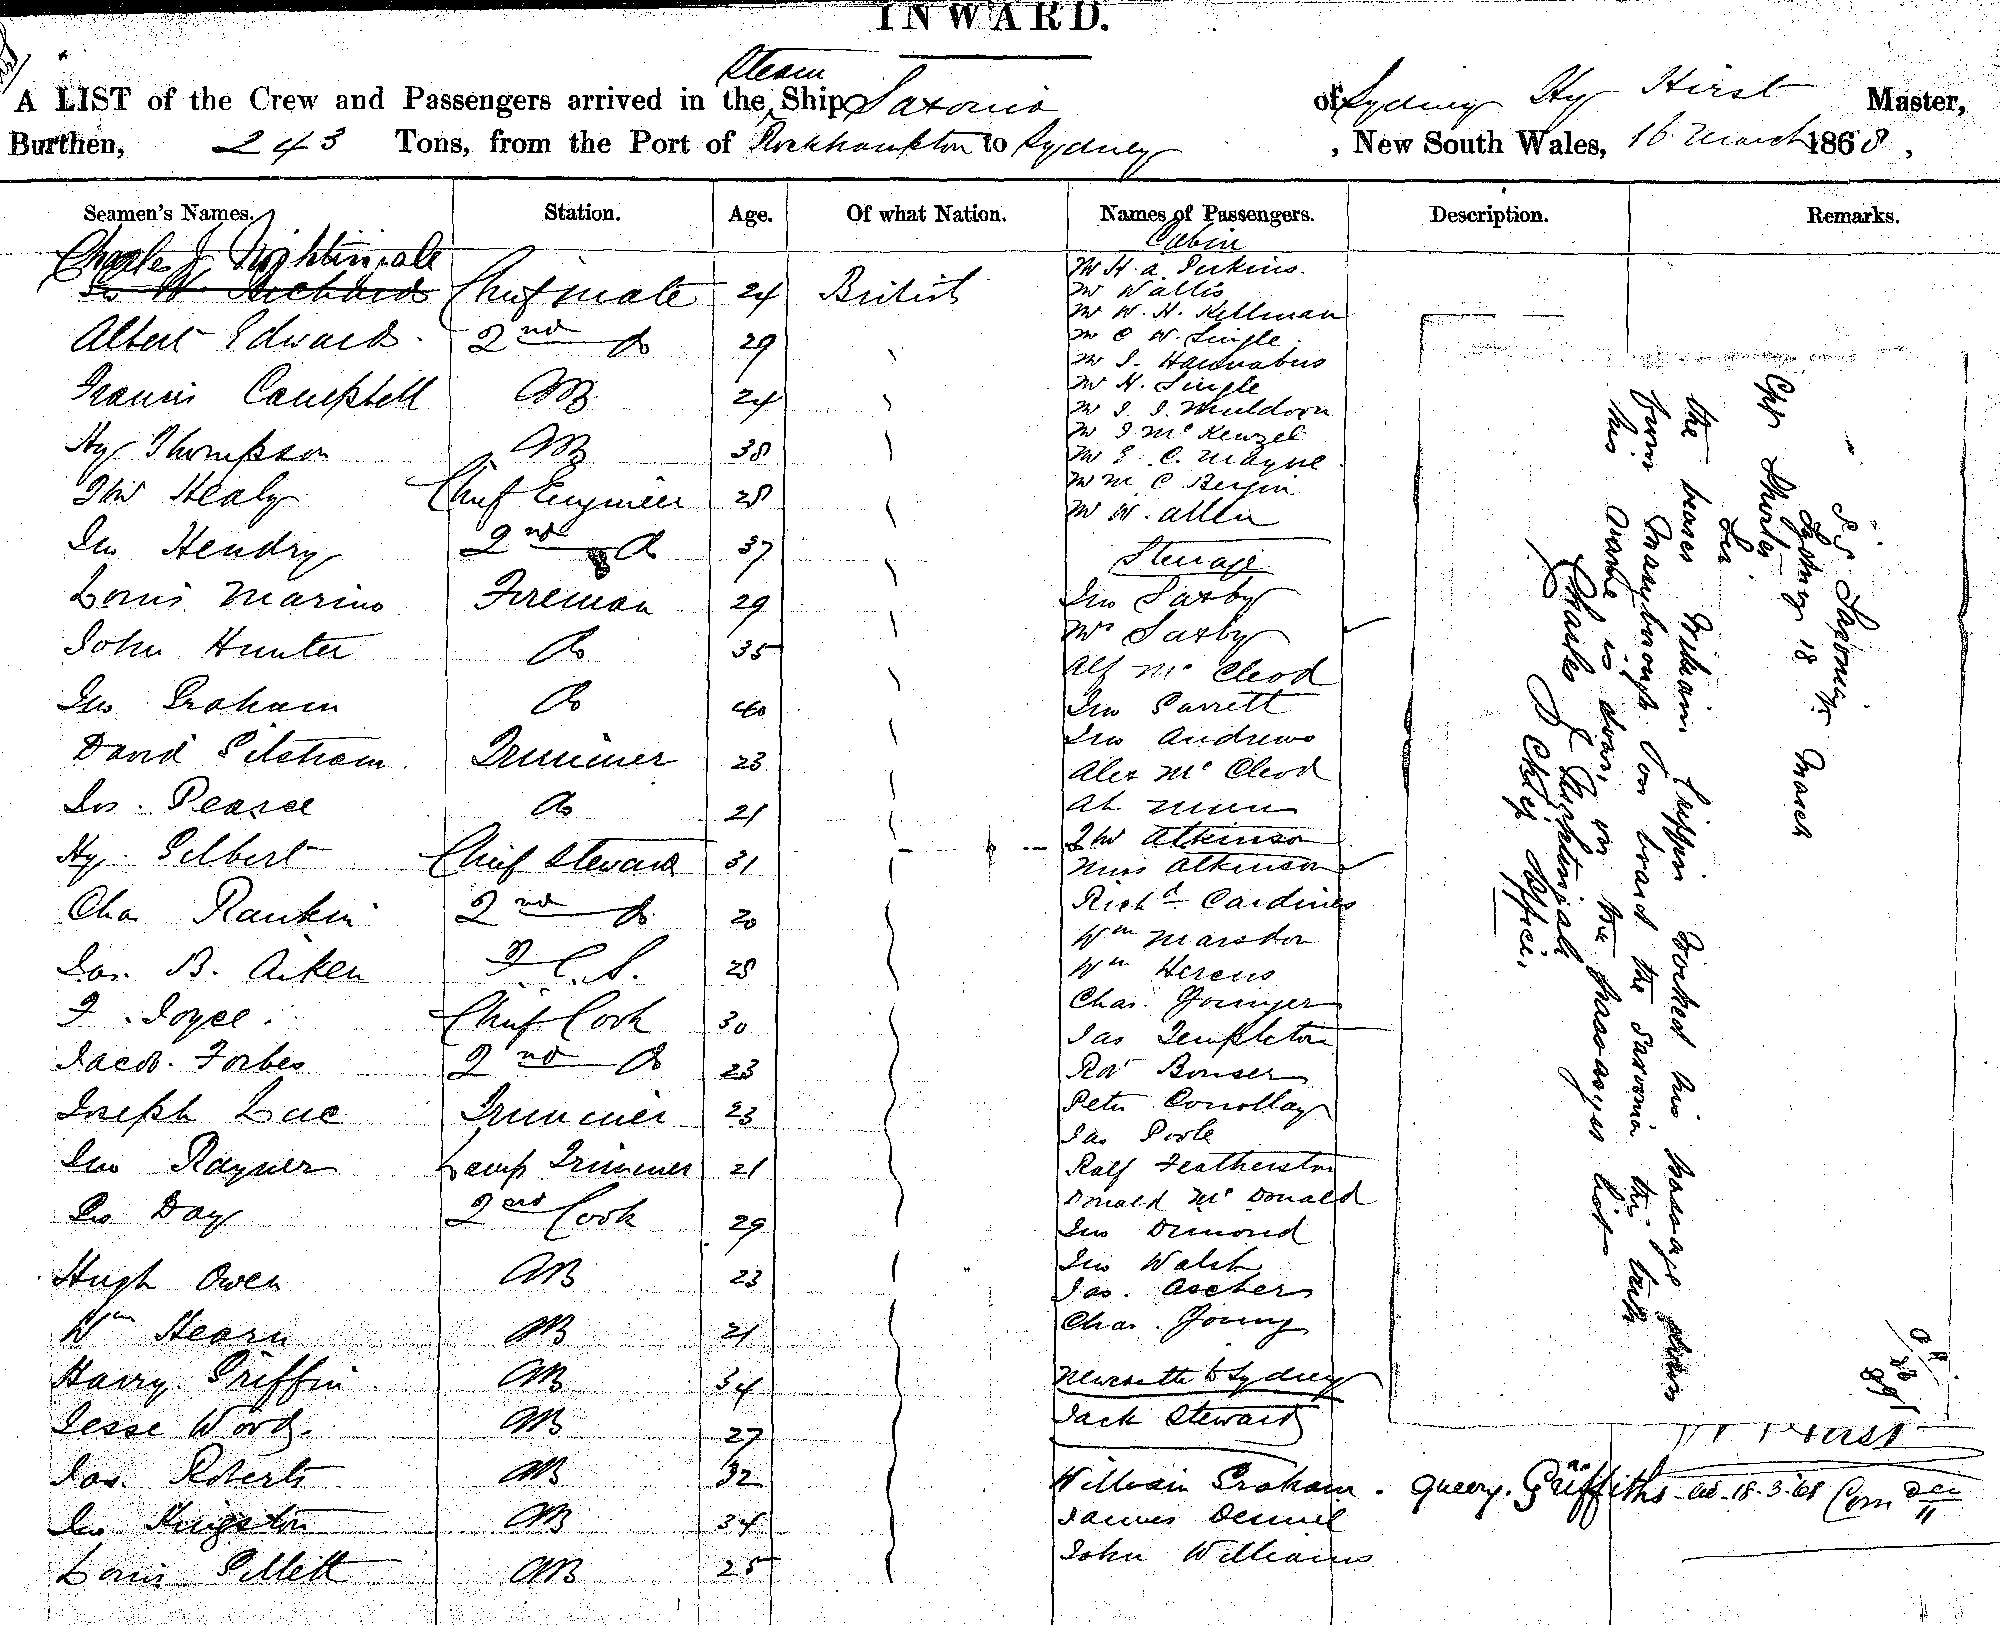 INWARD.
Steam
A LIST of the Crew and Passengers arrived in the Ship Saxonia of Sydney Hy Hirst Master,
Burthen, 243 Tons, from the Port of Rockhampton to Sydney, New South Wales, 16 March 1868,
Seamen's Names. Station. Age. Of what Nation. Names of Passengers. Description. Remarks.
Charles J Nightingale
Chief mate 24 British
Albert Edwards 2nd Do 29
Francis Campbell AB 24
Hy Thompson AB 38
Healy Chief Engineer 28
Jno Hendry 2nd Do 37
Louis Marino Fireman 29
John Hunter Do 35
Jno Graham Do 40
David Trimmer 23
Jos. Pearce Do 21
Hy Gilbert Chief Steward 31
Chas Rankin 2nd Do 20
Jas. B. Aiken 28
F. Joyce Chief Cook 30
Jacob Forbes 2nd Do 23
Joseph Luc Trimmer 23
Jno Rayner Lamp Trimmer 21
Day 2nd Cook 29
Hugh Owen AB 23
Wm Hearn AB 21
Harry Griffin AB 34
Jesse Wood AB 27
Jas. Roberts AB 32
Jno Kingston AB 34
Louis Gillett AB 25
Cabin
Mr H. A. Perkins.
Mr Wallis
Mr W. H. Kellman
Mr C W. Single
Mr J. Hannabus
Mr H. Single
Mr J. J. Muldoon
Mr J McKenzel
Mr E. C. Mayne
Mr M. C Bergin
Mr W. Allen
Steerage
Jno Saxby
Mrs Saxby
Alf McCleod
Jno Garrett
Jno Andrews
Alex McCleod
Ah Mun
Thos Atkinson
Miss Atkinson
Richd Cardines
Wm Marsdon
Wm Hercus
Chas. Younger
Jas Templeton
Robt Bonser
Peter Conollay
Jas Poole
Ralf Featherston
Donald McDonald
Jno Ormond
Jno Walsh
Jas. Ascher
Chas. Young
Newcastle to Sydney
Jack Steward
William Graham. query. Griffiths 18.3.68
James Dennie
John Williams
S.S. Saxonia
Sydney 18 March
Chf Shorter
Sir
the bearer William Griffin Worked his passage down
from Maryborough on board the Saxonia this trip
his name is down on the passenger list
Charles J Nightingale
Chief Officer.
H Hirst